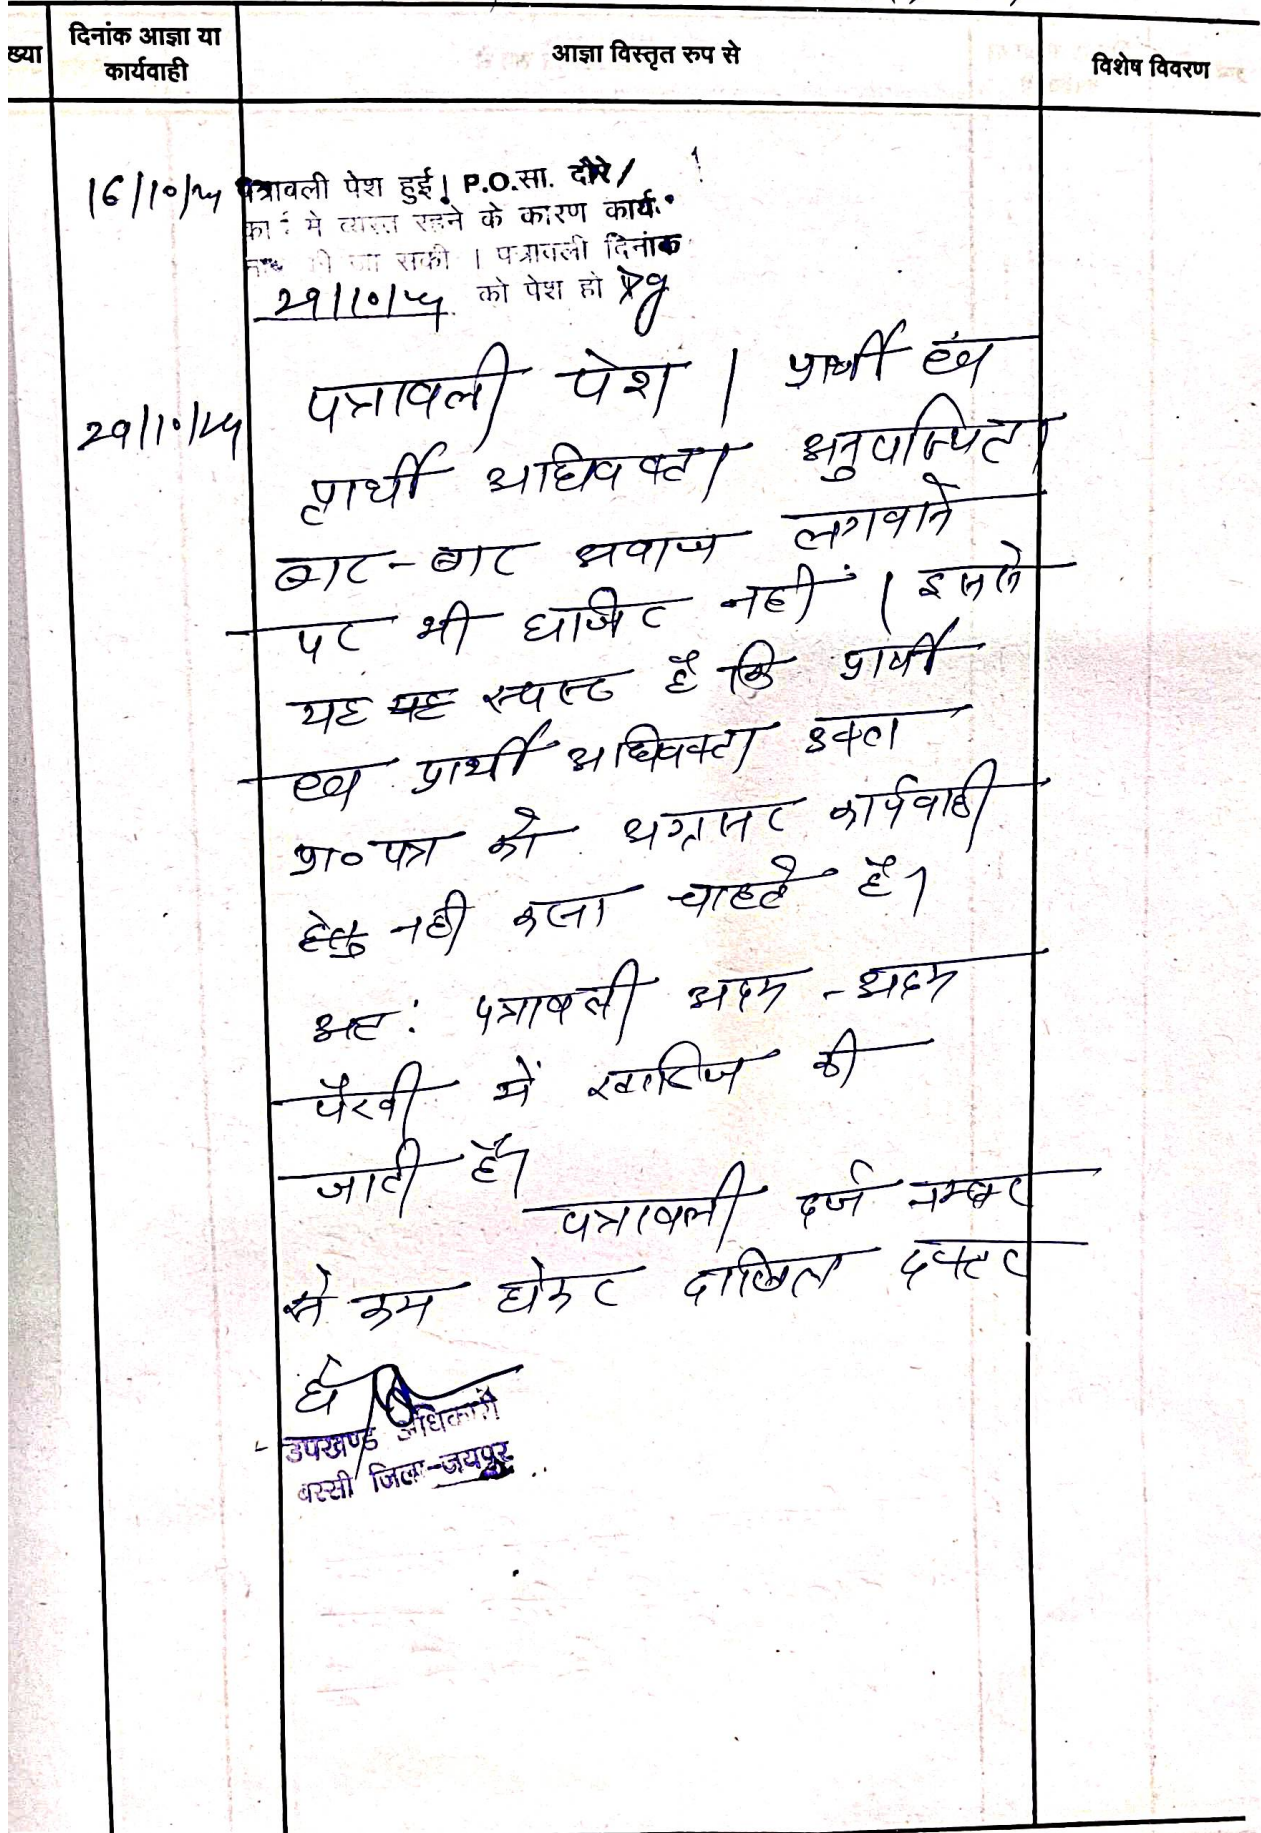 ख्या
दिनांक आज्ञा या
कार्यवाही
आज्ञा विस्तृत रुप से
विशेष विवरण
16/10/24 पत्रावली पेश हुई। P.O.सा. दौरे/
में व्यस्त रहने के कारण कार्य
जा सकी । पत्रावली दिनांक
29/10/24 को पेश हो
29/10/24
पत्रावली पेश । प्रार्थी एवं
प्रार्थी अधिवक्ता अनुपस्थित।
बार-बार आवाज लगवाने
पर भी हाजिर नहीं । इससे
यह स्पष्ट है कि प्रार्थी
एवं प्रार्थी अधिवक्ता उक्त
प्रा० पत्र को अग्रसर कार्यवाही
हेतु नही करना चाहते है।
अतः पत्रावली अदम - अदम
पैरवी में खारिज की
जाती है।
पत्रावली दर्ज नम्बर
से कम होकर दाखिल दफ्तर
हो
उपखण्ड अधिकारी
बस्सी जिला-जयपुर